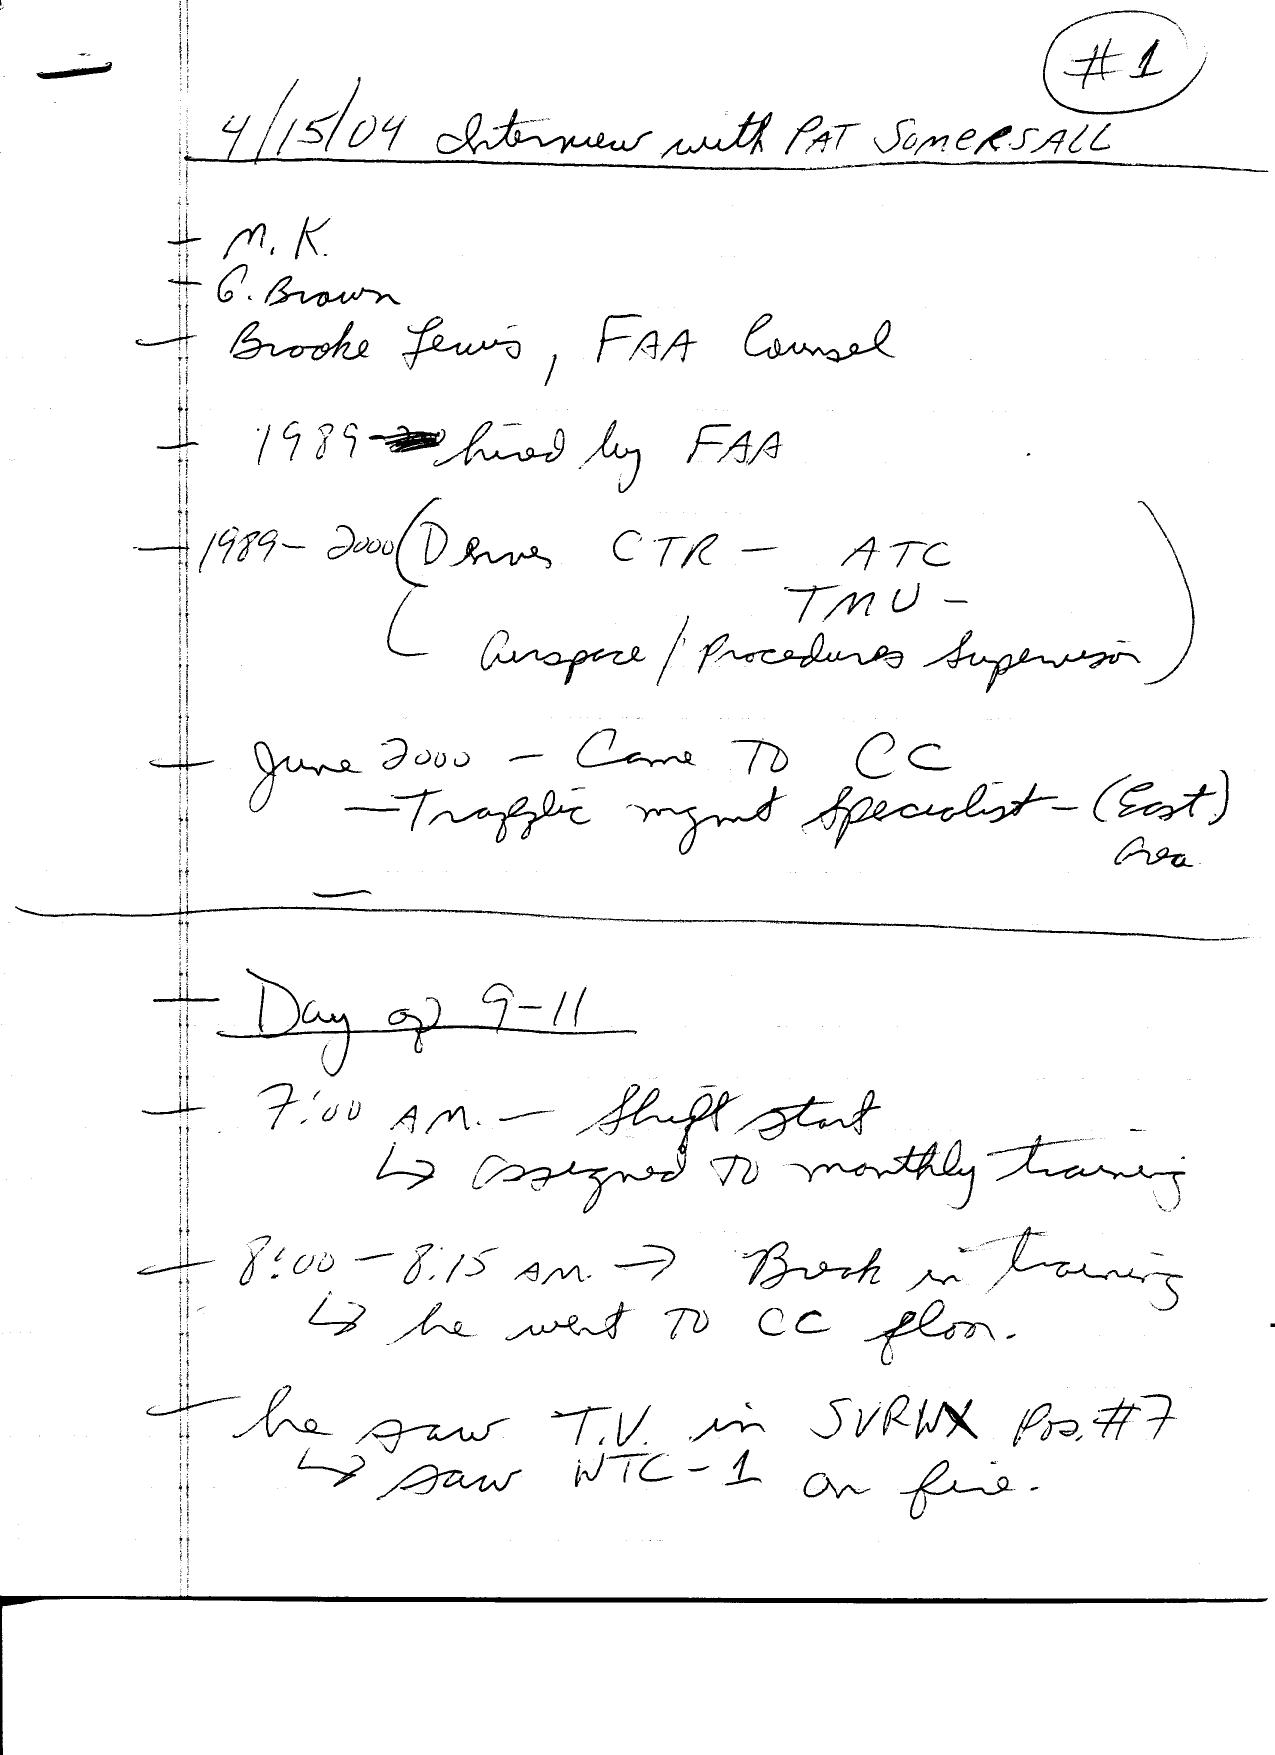 #1
4/15/04 Interview with PAT SOMERSALL
— M. K.
— G. Brown
— Brooke Lewis, FAA Counsel
— 1989 hired by FAA
— 1989-2000 (Denver CTR - ATC
TMU -
Airspace / Procedures Supervisor)
— June 2000 - Came TO CC
- Traffic mgmt Specialist - (East)
Area
— Day of 9-11
— 7:00 AM. - Shift start
↳ assigned TO monthly training
— 8:00 - 8:15 AM. → Break in training
↳ he went TO CC floor.
— he saw T.V. in SVRWX Pos. #7
↳ saw WTC-1 on fire.